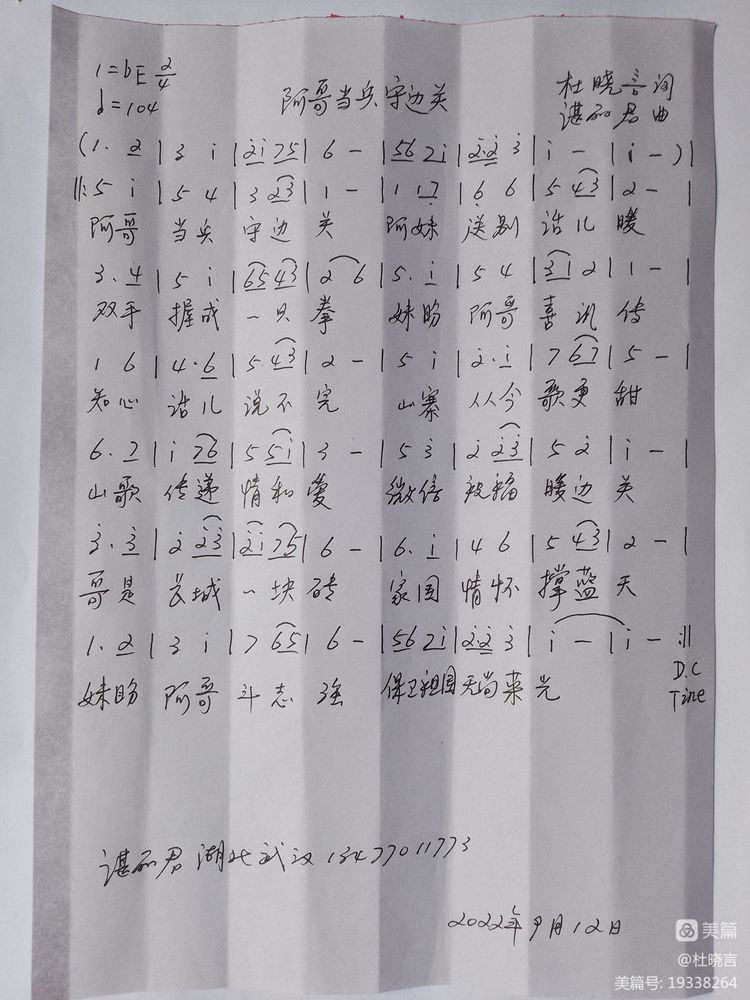 1=bE 2/4
♩=104
阿哥当兵守边关
杜晓言词
谌丽君曲
(1. 2 | 3 i | 2i 75 | 6 - | 56 2i | 22 3 | i - | i - )|
||: 5 i | 5 4 | 3 23 | 1 - | 1 17 | 6 6 | 5 43 | 2 - |
阿哥 当兵 守边 关 阿妹 送别 话儿 暖
3. 4 | 5 i | 65 43 | 2 6 | 5. i | 5 4 | 31 2 | 1 - |
双手 握成 一只 拳 妹盼 阿哥 喜讯 传
1 6 | 4. 6 | 5 43 | 2 - | 5 i | 2. i | 7 67 | 5 - |
知心 话儿 说不 完 山寨 从今 歌更 甜
6. 7 | i 76 | 5 5i | 3 - | 5 3 | 2 23 | 5 2 | i - |
山歌 传递 情和 爱 微信 被幅 暖边 关
3. 3 | 2 23 | 2i 75 | 6 - | 6. i | 4 6 | 5 43 | 2 - |
哥是 长城 一块 砖 家国 情怀 撑蓝 天
1. 2 | 3 i | 7 65 | 6 - | 56 2i | 22 3 | i - | i - :||
D.C
妹盼 阿哥 斗志 强 保卫祖国 无尚荣 光
Tine
谌丽君 湖北武汉 13477011773
2022年9月12日
美篇
@杜晓言
美篇号: 19338264